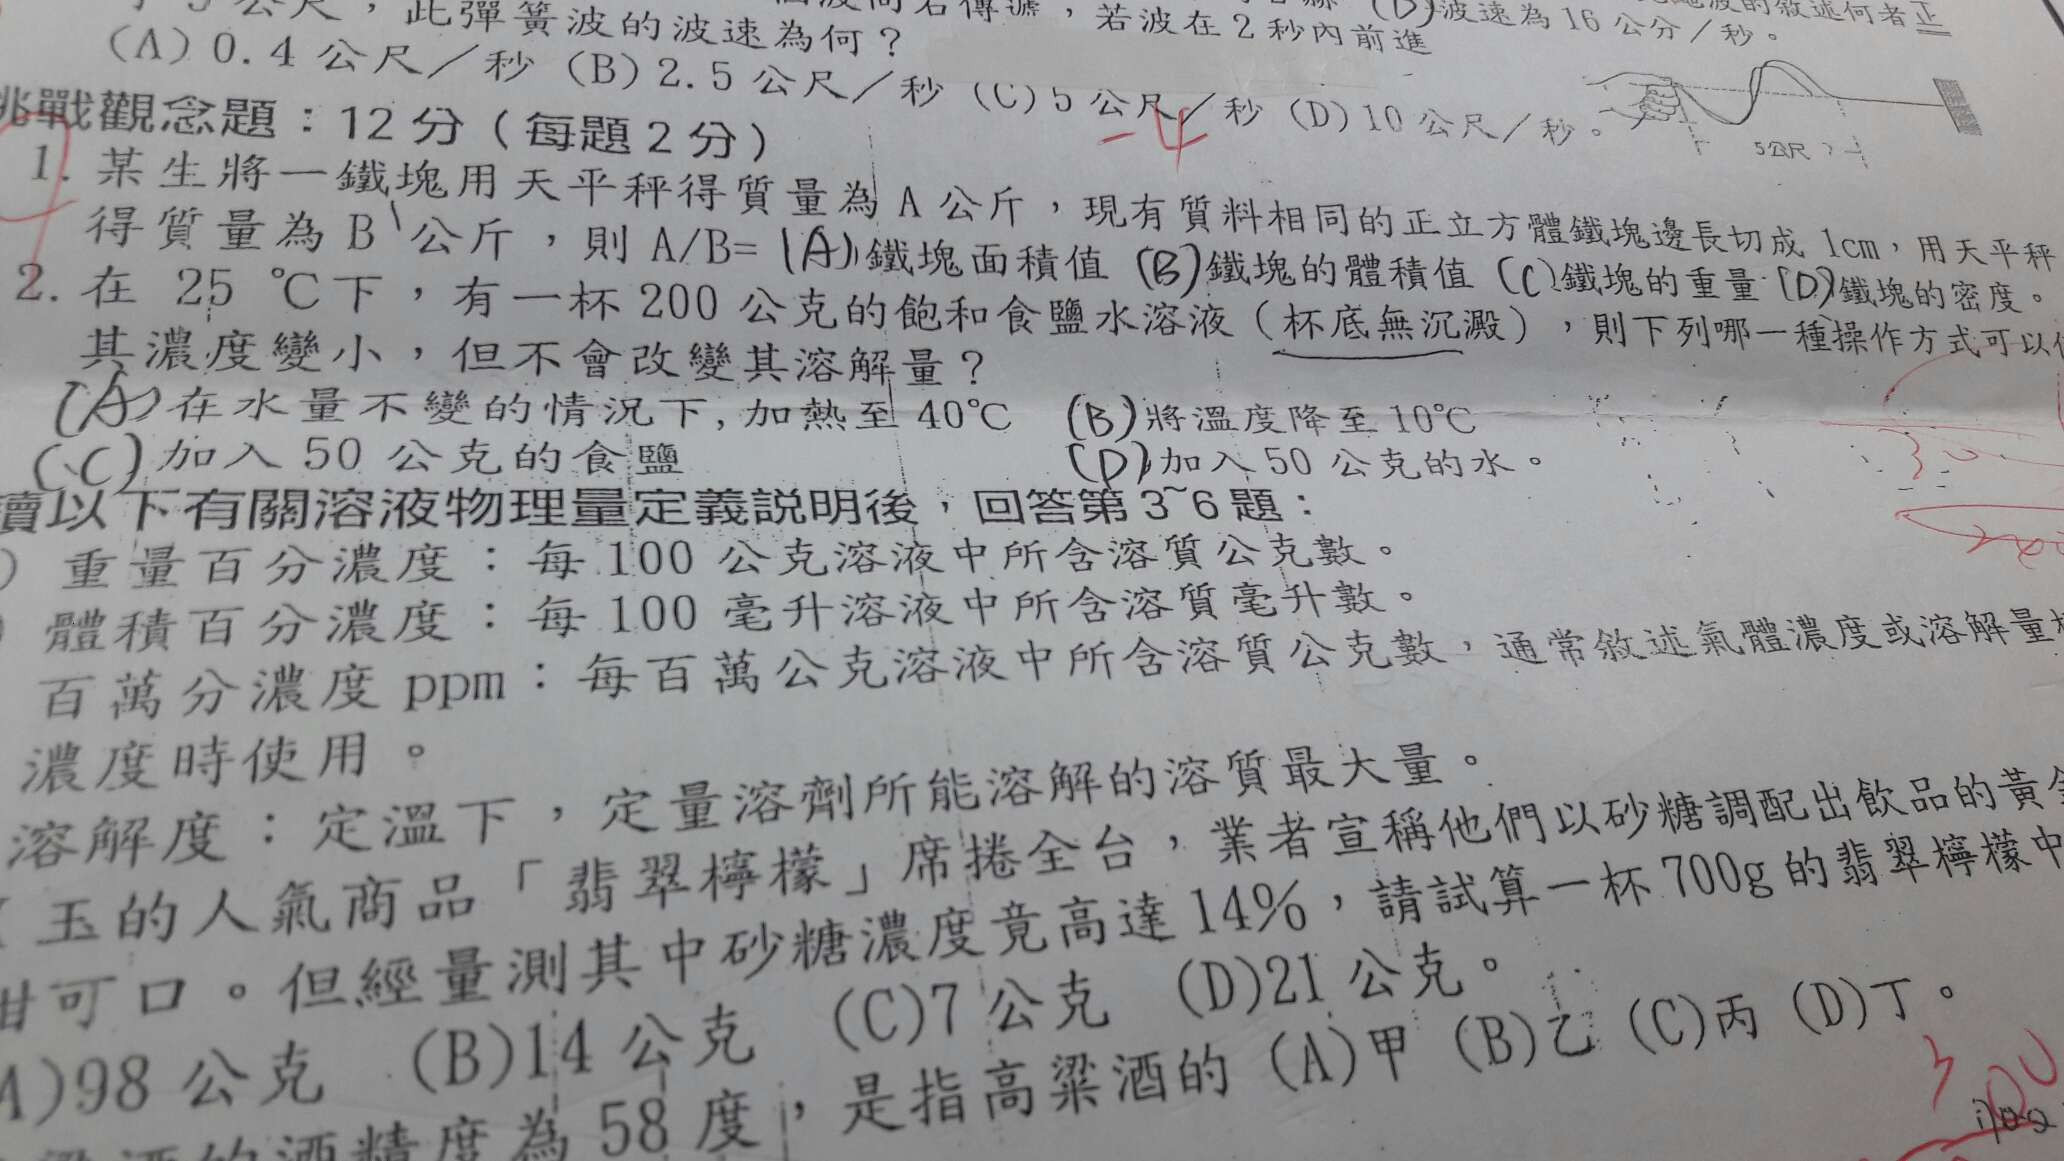 公尺，此彈簧波的波速為何？
若波在2秒內前進
(D)波速為16公分／秒。
波的敘述何者正
(A) 0.4 公尺／秒 (B) 2.5 公尺／秒 (C) 5 公尺／秒 (D) 10 公尺／秒。
-4
5公尺
挑戰觀念題：12分（每題2分）
1. 某生將一鐵塊用天平秤得質量為 A 公斤，現有質料相同的正立方體鐵塊邊長切成 1cm，用天平秤
得質量為 B 公斤，則 A/B= (A)鐵塊面積值 (B)鐵塊的體積值 (C)鐵塊的重量 (D)鐵塊的密度。
2. 在 25 ℃下，有一杯 200 公克的飽和食鹽水溶液（杯底無沉澱），則下列哪一種操作方式可以使
其濃度變小，但不會改變其溶解量？
(A)在水量不變的情況下,加熱至 40℃ (B)將溫度降至 10℃
(C)加入 50 公克的食鹽 (D)加入 50 公克的水。
30
讀以下有關溶液物理量定義説明後，回答第 3~6 題：
）重量百分濃度：每 100 公克溶液中所含溶質公克數。
）體積百分濃度：每 100 毫升溶液中所含溶質毫升數。
百萬分濃度 ppm：每百萬公克溶液中所含溶質公克數，通常敘述氣體濃度或溶解量
濃度時使用。
溶解度：定溫下，定量溶劑所能溶解的溶質最大量。
玉的人氣商品「翡翠檸檬」席捲全台，業者宣稱他們以砂糖調配出飲品的黃金
甜可口。但經量測其中砂糖濃度竟高達 14%，請試算一杯 700g 的翡翠檸檬中
A)98 公克 (B)14 公克 (C)7 公克 (D)21 公克。
酒的酒精度為 58 度，是指高粱酒的 (A)甲 (B)乙 (C)丙 (D)丁。